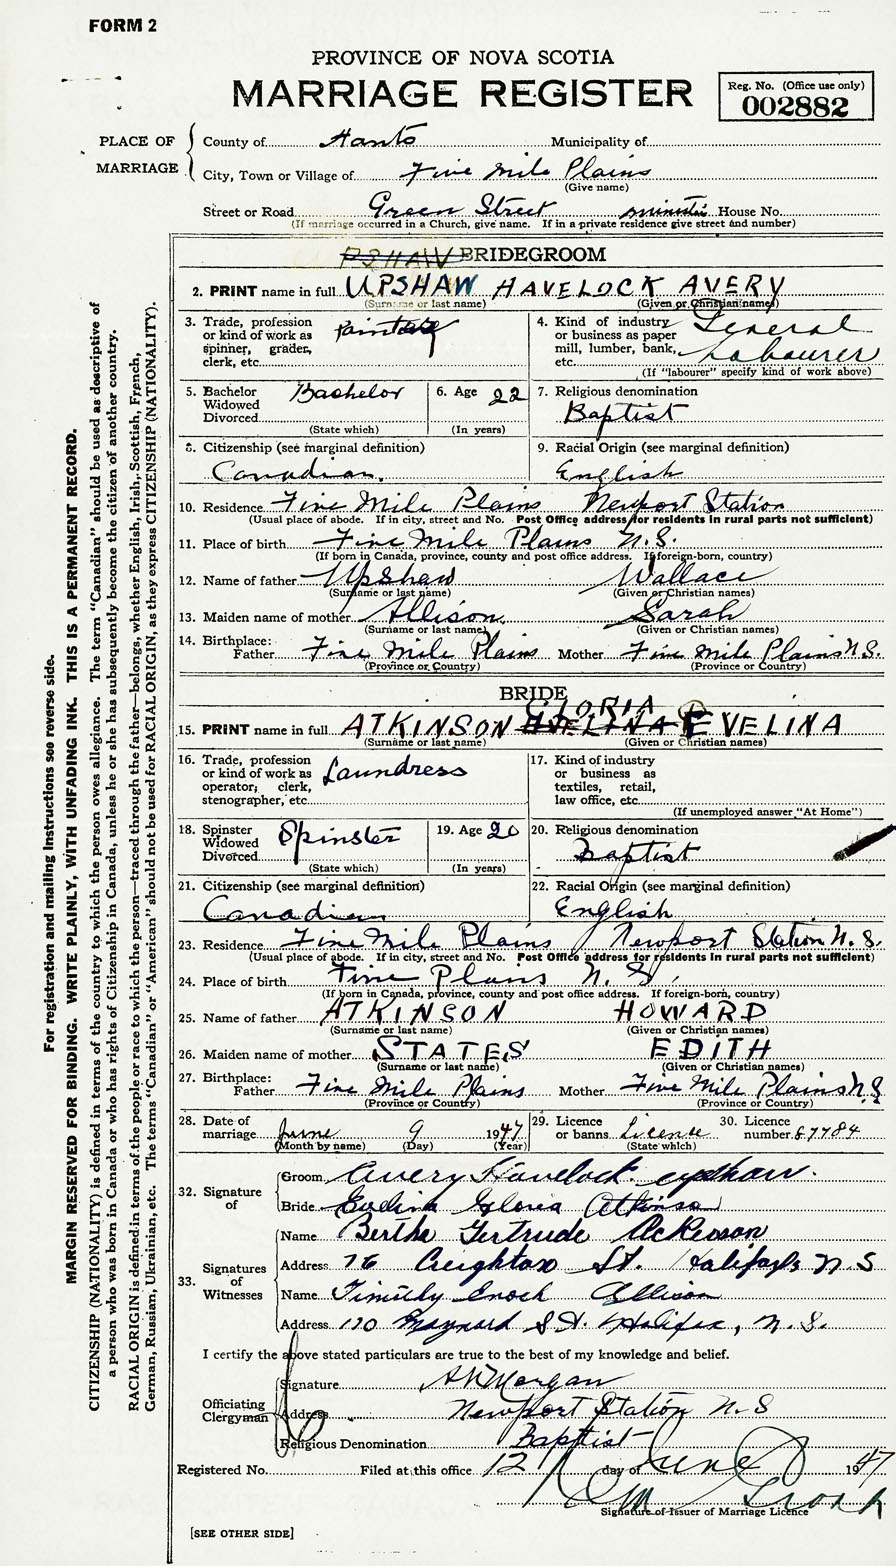 FORM 2
PROVINCE OF NOVA SCOTIA
MARRIAGE REGISTER
Reg. No. (Office use only)
002882
PLACE OF MARRIAGE
County of Hants Municipality of
City, Town or Village of Five Mile Plains
(Give name)
Street or Road Green Street House No.
(If marriage occurred in a Church, give name. If in a private residence give street and number)
PSHAW BRIDEGROOM
2. PRINT name in full UPSHAW HAVELOCK AVERY
(Surname or last name) (Given or Christian names)
3. Trade, profession or kind of work as spinner, grader, clerk, etc.
4. Kind of industry or business as paper mill, lumber, bank, etc. General Labourer
(If "labourer" specify kind of work above)
5. Bachelor Widowed Divorced Bachelor
(State which)
6. Age 22
(In years)
7. Religious denomination
Baptist
8. Citizenship (see marginal definition)
Canadian.
9. Racial Origin (see marginal definition)
English
10. Residence Five Mile Plains Newport Station
(Usual place of abode. If in city, street and No. Post Office address for residents in rural parts not sufficient)
11. Place of birth Five Mile Plains N.S.
(If born in Canada, province, county and post office address. If foreign-born, country)
12. Name of father Upshaw Wallace
(Surname or last name) (Given or Christian names)
13. Maiden name of mother Allison Sarah
(Surname or last name) (Given or Christian names)
14. Birthplace: Father Five Mile Plains Mother Five Mile Plains N.S.
(Province or Country) (Province or Country)
BRIDE
GLORIA
15. PRINT name in full ATKINSON EVELINA
(Surname or last name) (Given or Christian names)
16. Trade, profession or kind of work as operator, clerk, stenographer, etc. Laundress
17. Kind of industry or business as textiles, retail, law office, etc.
(If unemployed answer "At Home")
18. Spinster Widowed Divorced Spinster
(State which)
19. Age 20
(In years)
20. Religious denomination
Baptist
21. Citizenship (see marginal definition)
Canadian
22. Racial Origin (see marginal definition)
English
23. Residence Five Mile Plains Newport Station N.S.
(Usual place of abode. If in city, street and No. Post Office address for residents in rural parts not sufficient)
24. Place of birth Five Plains N.S.
(If born in Canada, province, county and post office address. If foreign-born, country)
25. Name of father ATKINSON HOWARD
(Surname or last name) (Given or Christian names)
26. Maiden name of mother STATES EDITH
(Surname or last name) (Given or Christian names)
27. Birthplace: Father Five Mile Plains Mother Five Mile Plains N.S
(Province or Country) (Province or Country)
28. Date of marriage June 9 1947
(Month by name) (Day) (Year)
29. Licence or banns Licence
(State which)
30. Licence number 67784
32. Signature of
Groom Avery Havelock upshaw.
Bride Evelina Gloria Atkinson
33. Signatures of Witnesses
Name Bertha Gertrude
Address 76 Creighton St. Halifax N.S
Name Timithy Enoch Allison
Address 170 Maynard St. Halifax, N.S.
I certify the above stated particulars are true to the best of my knowledge and belief.
Officiating Clergyman
Signature Morgan
Address Newport Station N.S
Religious Denomination Baptist
Registered No. Filed at this office 12 day of June 1947
Signature of Issuer of Marriage Licence
[SEE OTHER SIDE]
For registration and mailing instructions see reverse side.
MARGIN RESERVED FOR BINDING. WRITE PLAINLY, WITH UNFADING INK. THIS IS A PERMANENT RECORD.
CITIZENSHIP (NATIONALITY) is defined in terms of the country to which the person owes allegiance. The term "Canadian" should be used as descriptive of
a person who was born in Canada or who has rights of Citizenship in Canada, unless he or she has subsequently become the citizen of another country.
RACIAL ORIGIN is defined in terms of the people or race to which the person—traced through the father—belongs, whether English, Irish, Scottish, French,
German, Russian, Ukrainian, etc. The terms "Canadian" or "American" should not be used for RACIAL ORIGIN, as they express CITIZENSHIP (NATIONALITY).